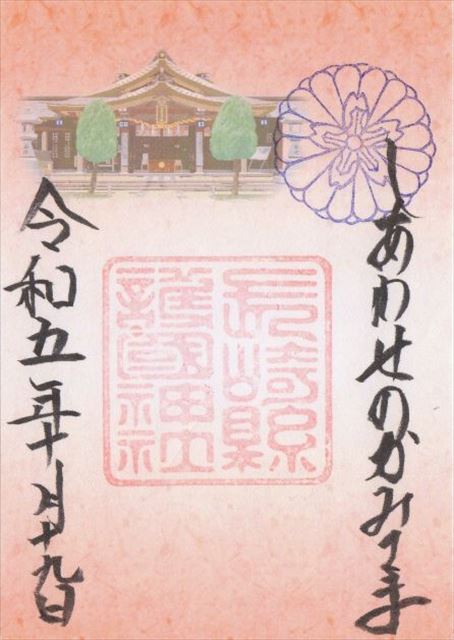 しあわせのかみさま
長崎縣
護國神社
令和五年十月十九日